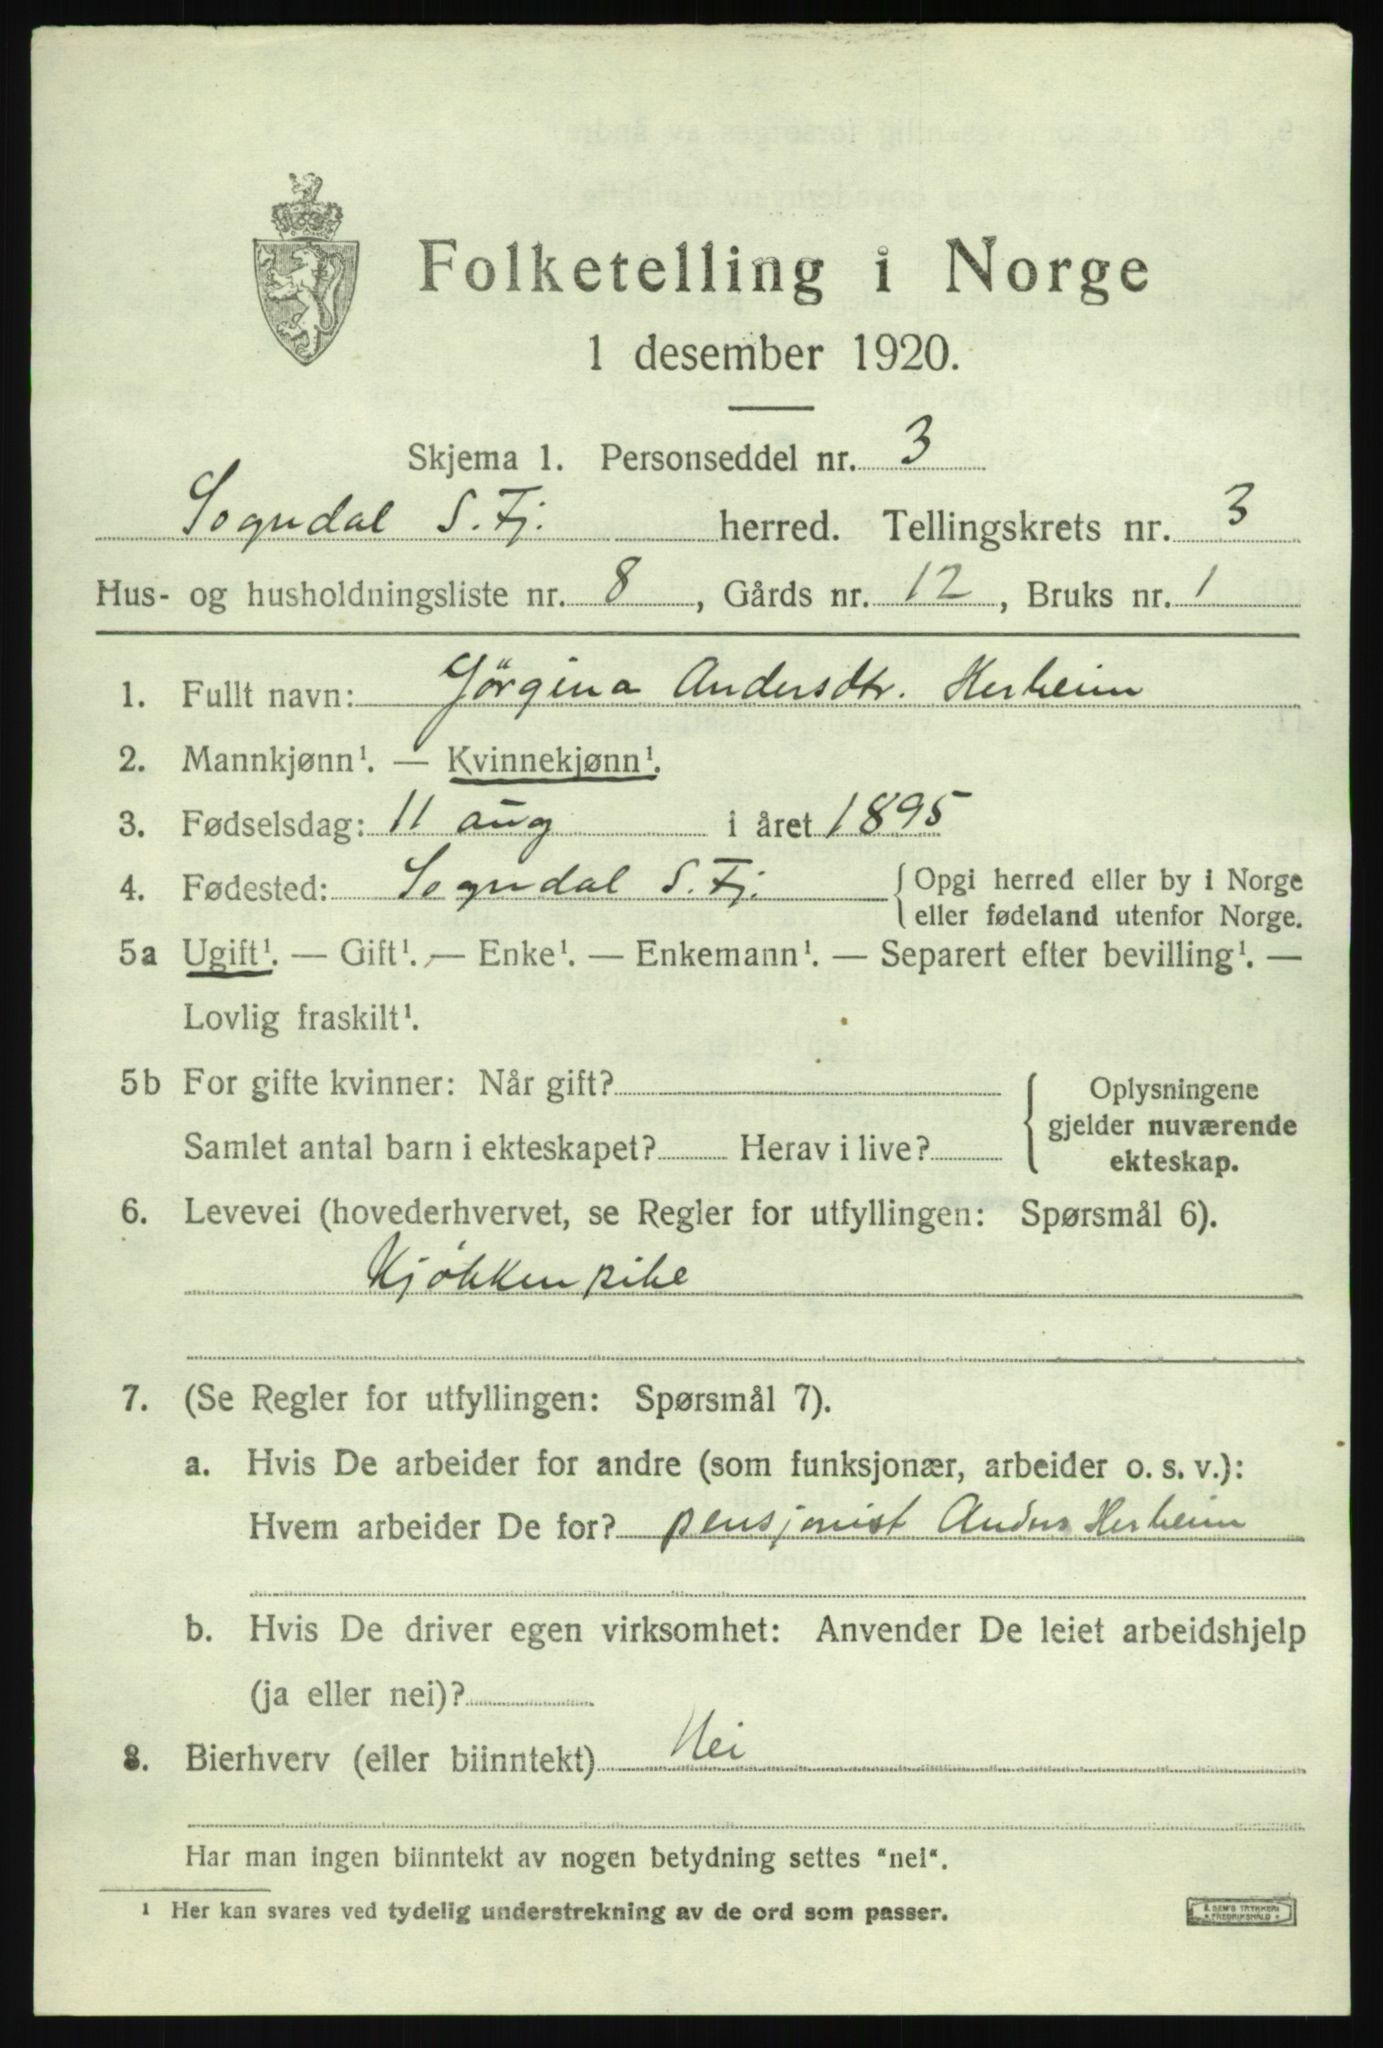 Folketelling i Norge
1 desember 1920.
Skjema 1. Personseddel nr. 3
Sogndal S. Fj. herred. Tellingskrets nr. 3
Hus- og husholdningsliste nr. 8, Gårds nr. 12, Bruks nr. 1
1. Fullt navn: Jörgina Andersdtr. Herheim
2. Mannkjønn¹. — Kvinnekjønn¹.
3. Fødselsdag: 11 aug i året 1895
4. Fødested: Sogndal S. Fj. { Opgi herred eller by i Norge
eller fødeland utenfor Norge.
5a Ugift¹. — Gift¹. — Enke¹. — Enkemann¹. — Separert efter bevilling¹. —
Lovlig fraskilt¹.
5b For gifte kvinner: Når gift? { Oplysningene
gjelder nuværende
Samlet antal barn i ekteskapet? Herav i live?
ekteskap.
6. Levevei (hovederhvervet, se Regler for utfyllingen: Spørsmål 6).
Kjökkenpike
7. (Se Regler for utfyllingen: Spørsmål 7).
a. Hvis De arbeider for andre (som funksjonær, arbeider o. s. v.):
Hvem arbeider De for? pensjonist Anders Herheim
b. Hvis De driver egen virksomhet: Anvender De leiet arbeidshjelp
(ja eller nei)?
8. Bierhverv (eller biinntekt) Nei
Har man ingen biinntekt av nogen betydning settes "nei".
¹ Her kan svares ved tydelig understrekning av de ord som passer.
SEM'S TRYKKERI
FREDRIKSHALD